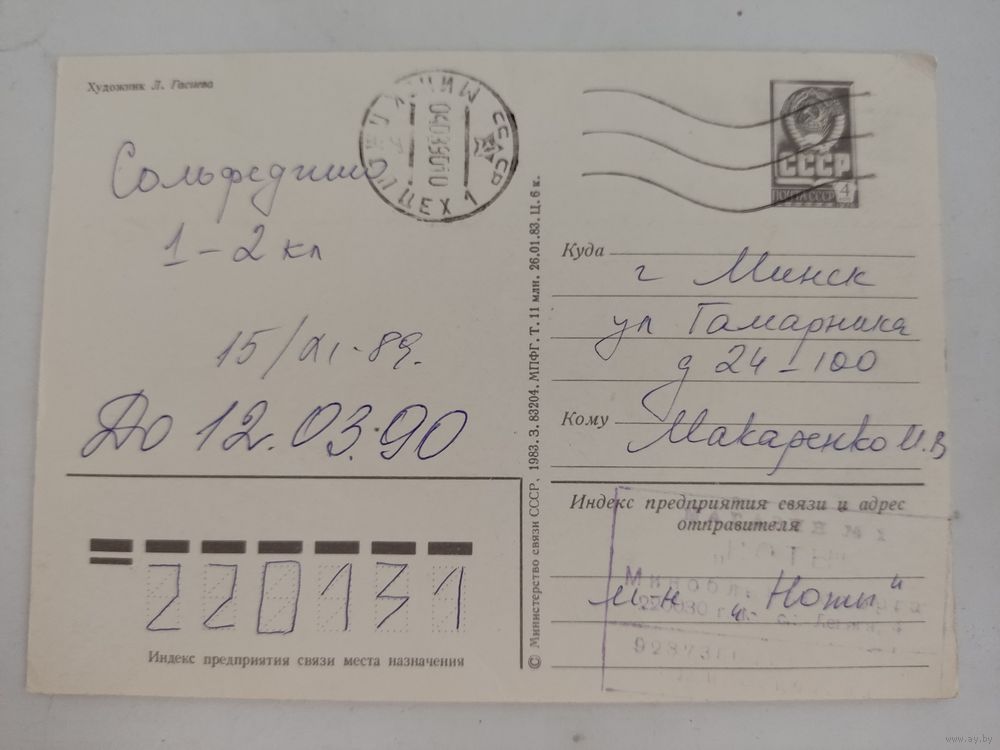 Художник Л. Гасиева
МИНСК
СССР
04039010
ЦЕХ 1
СССР
ПОЧТА СССР
4
Сольфеджио
1-2 кл
15/XI-89.
До 12.03.90
Куда
г Минск
ул Гамарника
д 24-100
Кому
Макаренко И.В
© Министерство связи СССР, 1983. З. 83204. МПФГ, Т. 11 млн. 26.01.83. Ц. 6 к.
220131
Индекс предприятия связи места назначения
Индекс предприятия связи и адрес отправителя
М-н "Ноты"
Минобл
220030 г.
www.ay.by